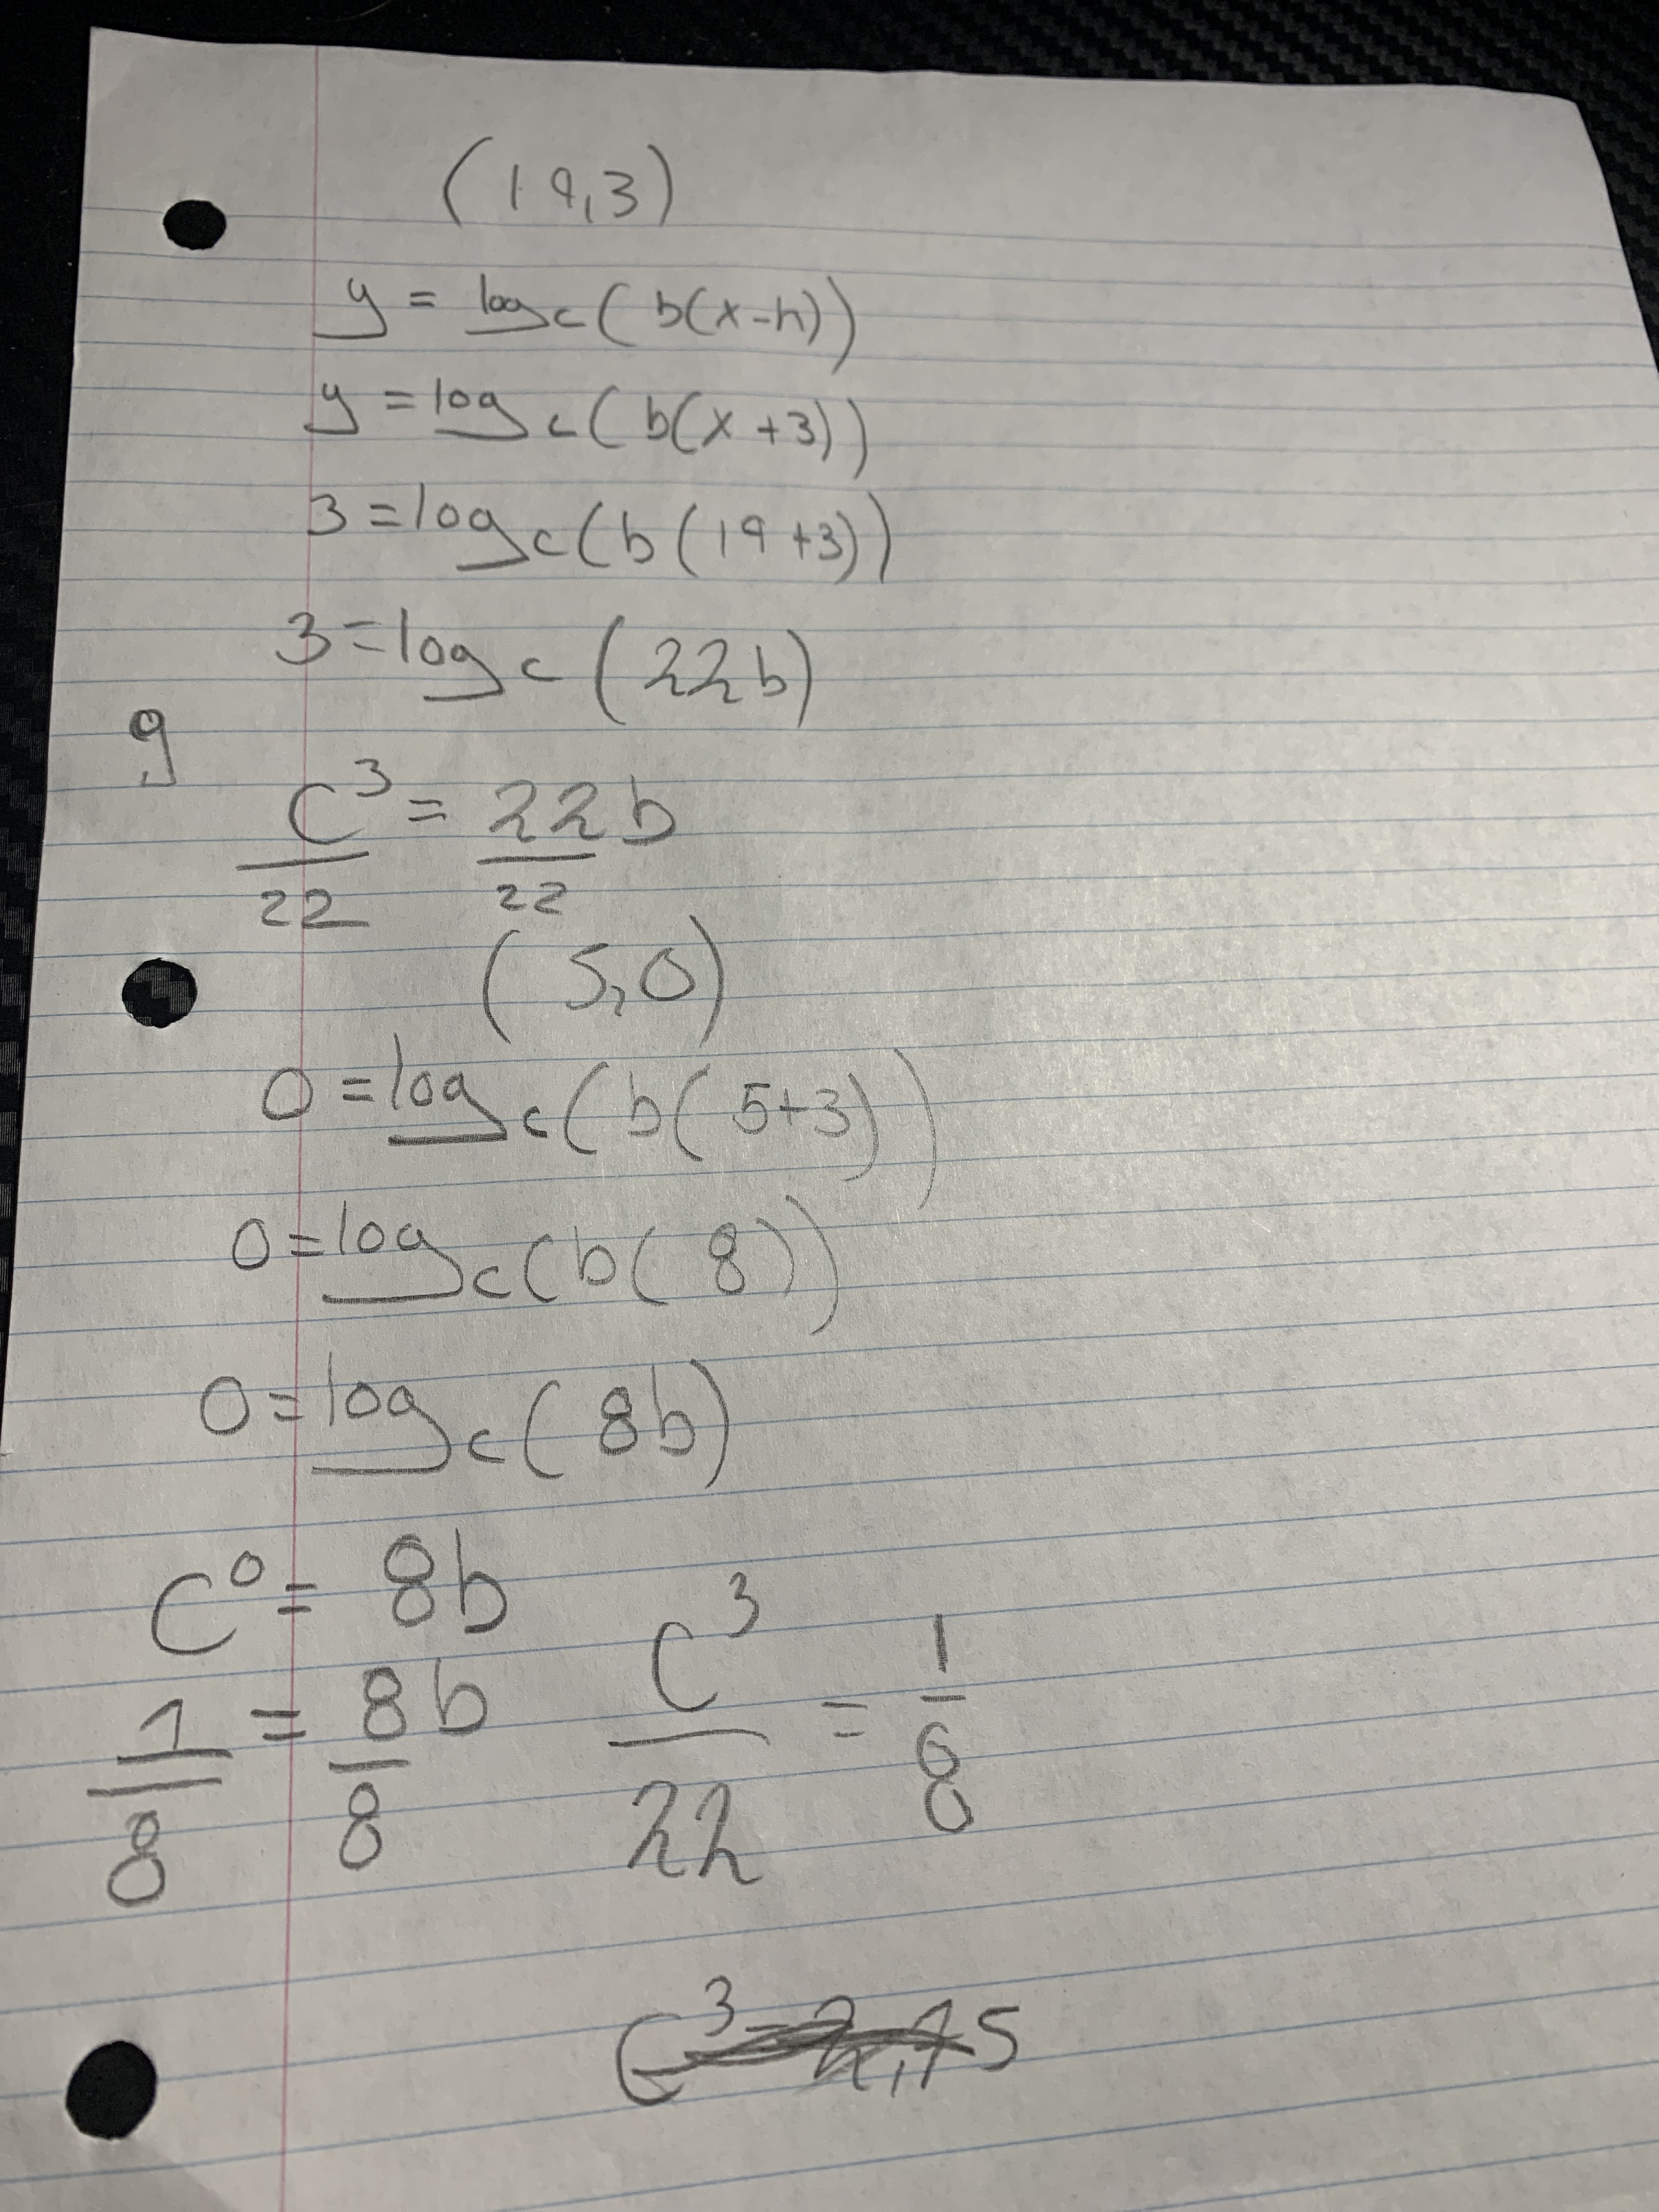 (19,3)
y = log c (b(x-h))
y = log c (b(x+3))
3 = log c (b(19+3))
3 = log c (22b)
g
c³ = 22b
22 22
(5,0)
0 = log c (b(5+3))
0 = log c (b(8))
0 = log c (8b)
c⁰ = 8b
1/8 = 8b/8
c³/22 = 1/8
c³ = 2.75